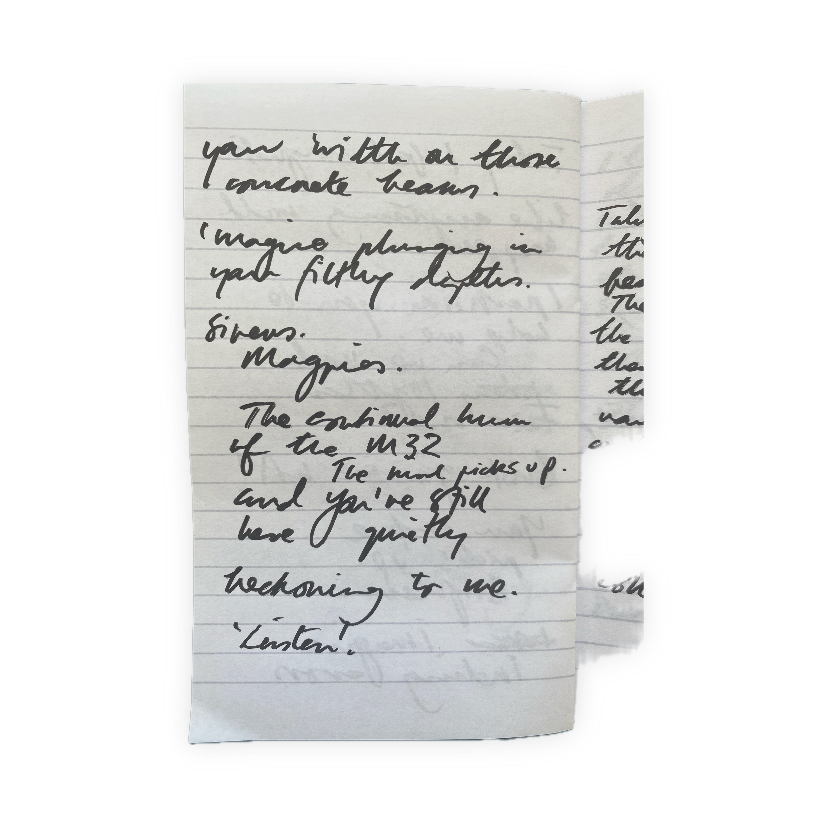 your width on those
concrete beams.
'magine plunging in
your filthy depths.
Sirens.
Magpies.
The continual hum
of the M32
The wind picks up.
and you're still
here quietly
beckoning to me.
'Listen'.
The
the